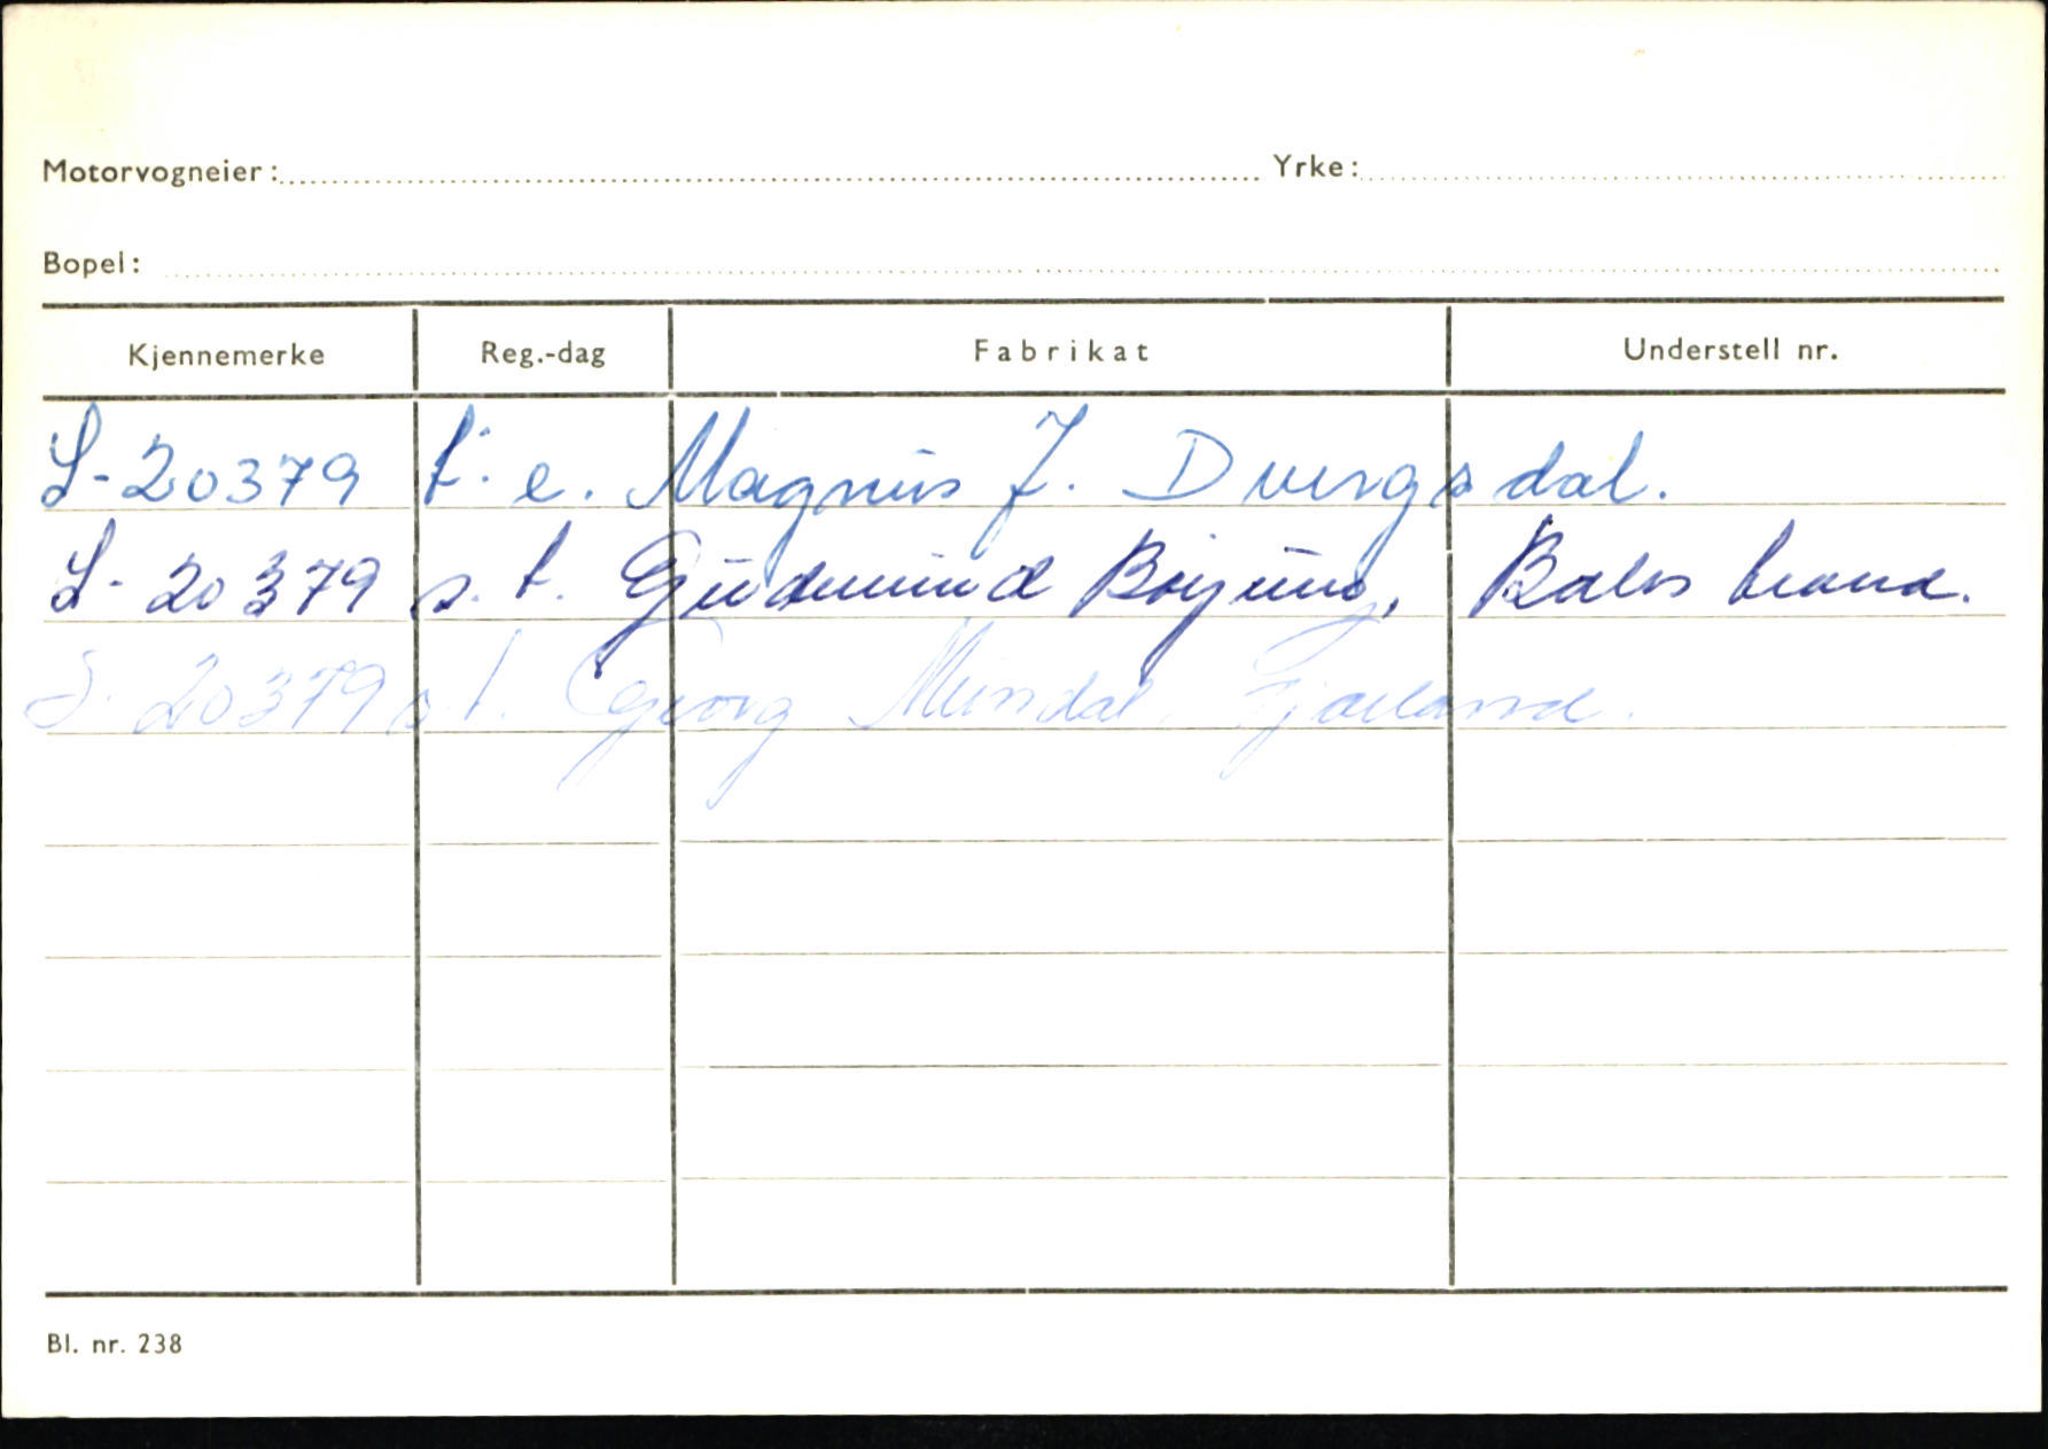 Motorvogneier: Yrke:
Bopel:
Kjennemerke Reg.-dag Fabrikat Understell nr.
S-20379 t. e. Magnus J. Dvergsdal.
S-20379 s. t. Gudmund Bøyum, Balestrand.
S-20379 s.t. Georg Mundal, Fjærland.
Bl. nr. 238